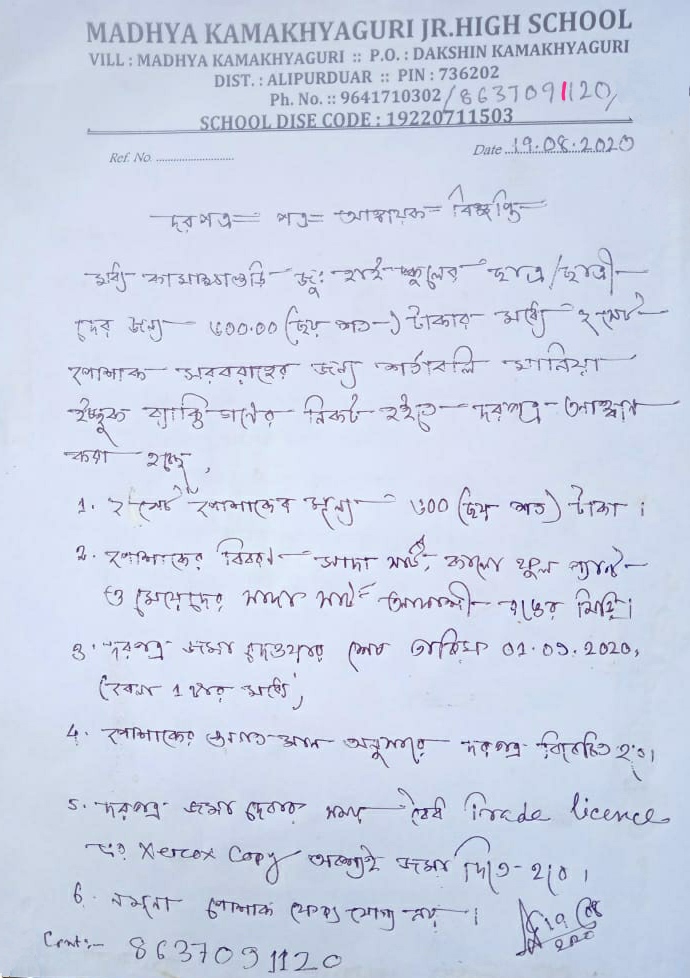 MADHYA KAMAKHYAGURI JR.HIGH SCHOOL
VILL : MADHYA KAMAKHYAGURI :: P.O. : DAKSHIN KAMAKHYAGURI
DIST. : ALIPURDUAR :: PIN : 736202
Ph. No. :: 9641710302/8637091120,
SCHOOL DISE CODE : 19220711503
Ref. No. ........................
Date 19.08.2020
দরপত্র পত্র আহ্বায়ক বিজ্ঞপ্তি
মধ্য কামাক্ষাগুড়ি জুঃ হাই স্কুলের ছাত্র/ছাত্রী
দের জন্য ৬০০.০০ (ছয় শত) টাকার মধ্যে ২ সেট
পোশাক সরবরাহের জন্য শর্তাবলি মানিয়া
ইচ্ছুক ব্যাক্তিগনের নিকট হইতে দরপত্র আহ্বান
করা হচ্ছে,
1. ২ সেট পোশাকের মূল্য ৬০০ (ছয় শত) টাকা।
2. পোশাকের বিবরণ সাদা সার্ট, কালো ফুল প্যান্ট
ও মেয়েদের সাদা সার্ট আকাশী রঙের মিডি।
3. দরপত্র জমা দেওয়ার শেষ তারিখ 01.09.2020,
(বেলা 1 টার মধ্যে)
4. পোশাকের গুনগত মান অনুসারে দরপত্র বিবেচিত হবে।
5. দরপত্র জমা দেবার সময় বৈধ Trade licence
এর Xerox Copy অবশ্যই জমা দিতে হবে।
6. নমুনা পোশাক ফেরৎ যোগ্য নয়।
19/08
Cont:- 8637091120